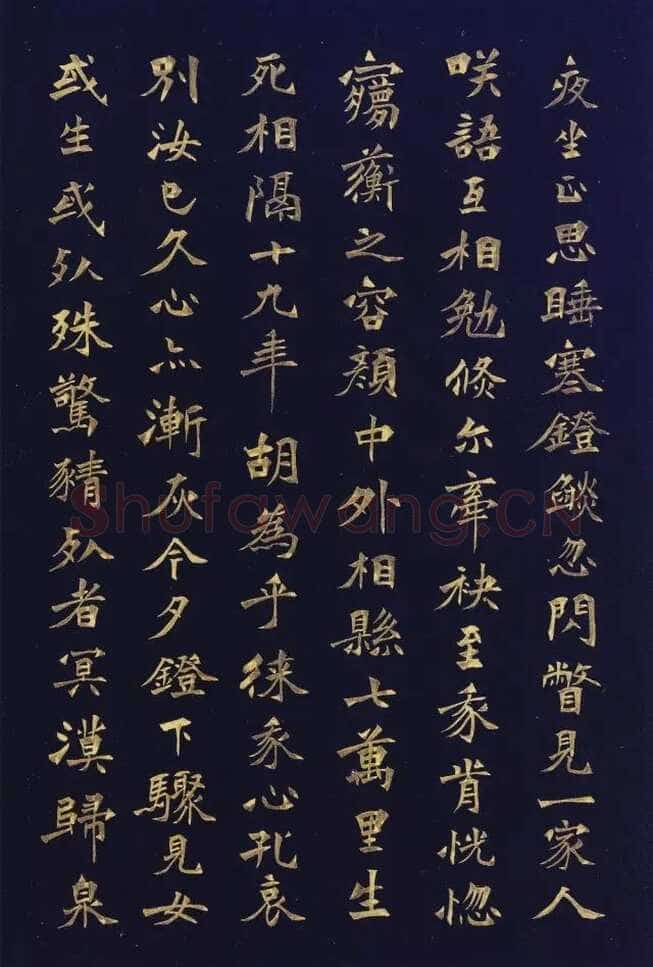 夜坐正思睡寒鐙欻忽閃瞥見一家人
咲語互相勉倐尒牽袂至我肯怳惚
蘅之容顏中外相縣七萬里生
死相隔十九年胡為乎徠我心孔哀
別汝已久心亦漸灰今夕鐙下驟見女
或生或死殊驚猜死者冥漠歸泉
Shufawang.CN